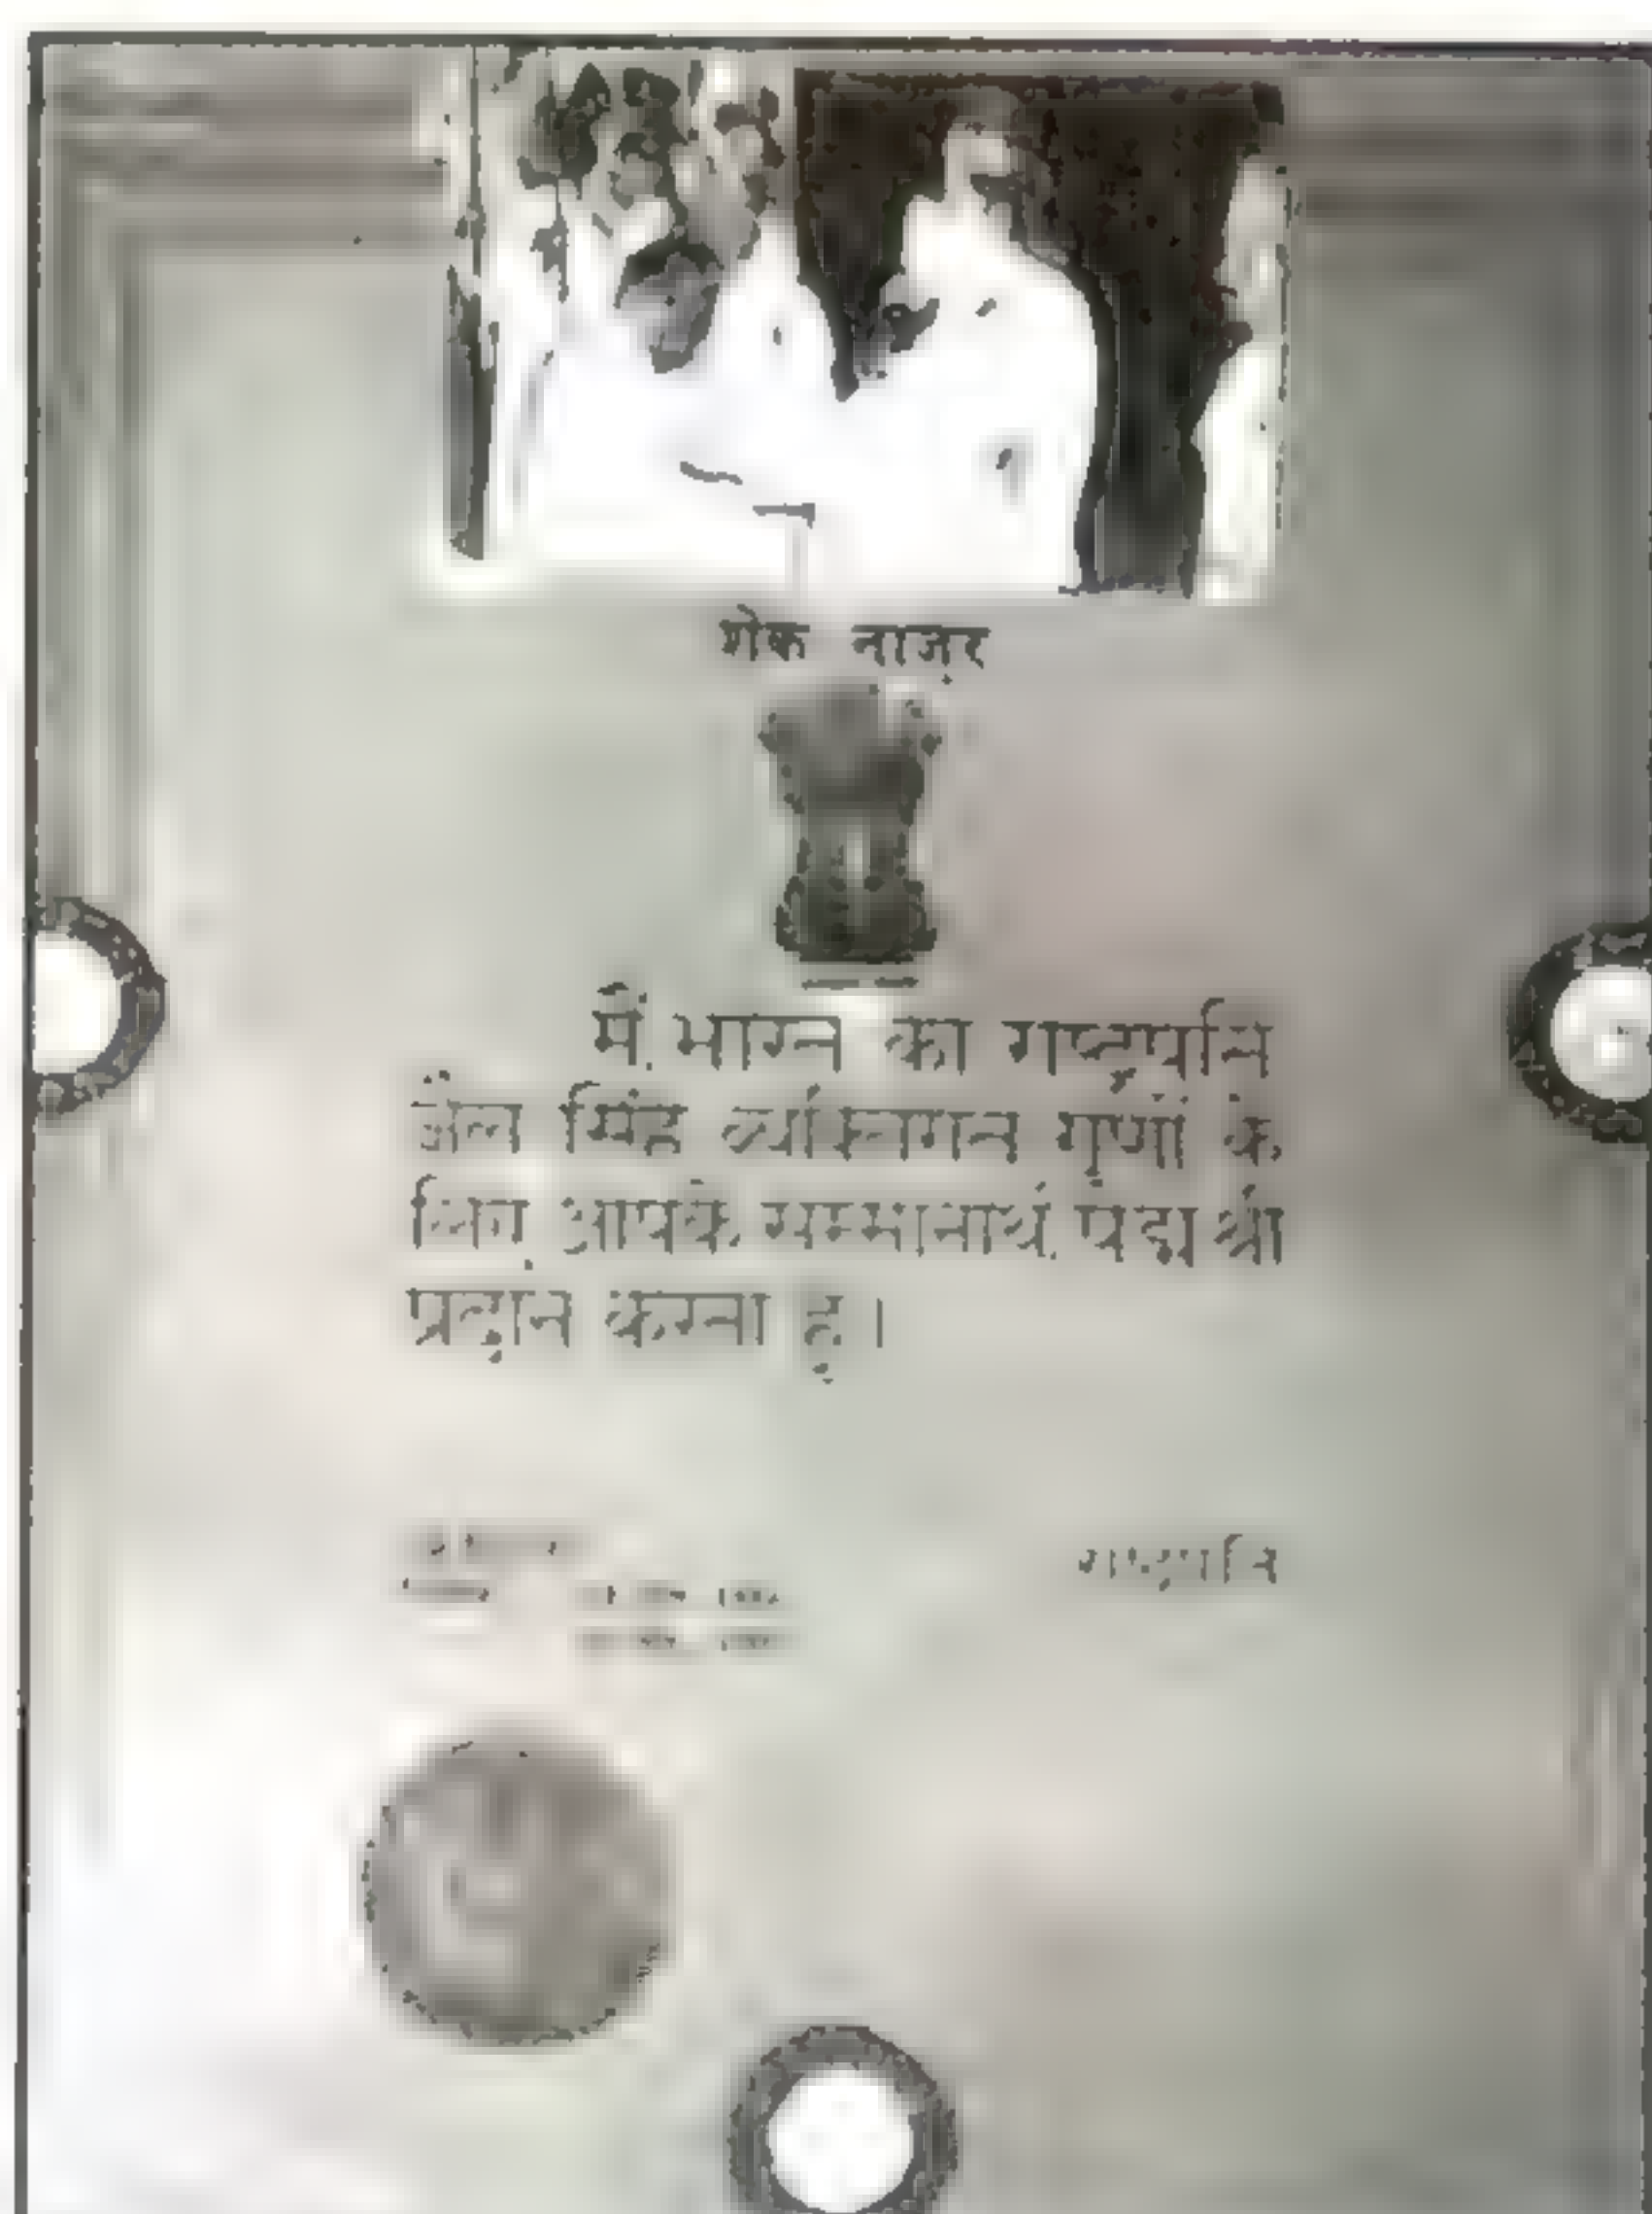 शेक नाज़र
मैं, भारत का राष्ट्रपति
ज़ैल सिंह व्यक्तिगत गुणों के
लिए आपके सम्मानार्थ पद्म श्री
प्रदान करता हूं।
राष्ट्रपति